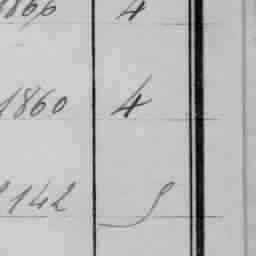 1866 4
1860 4
142 5